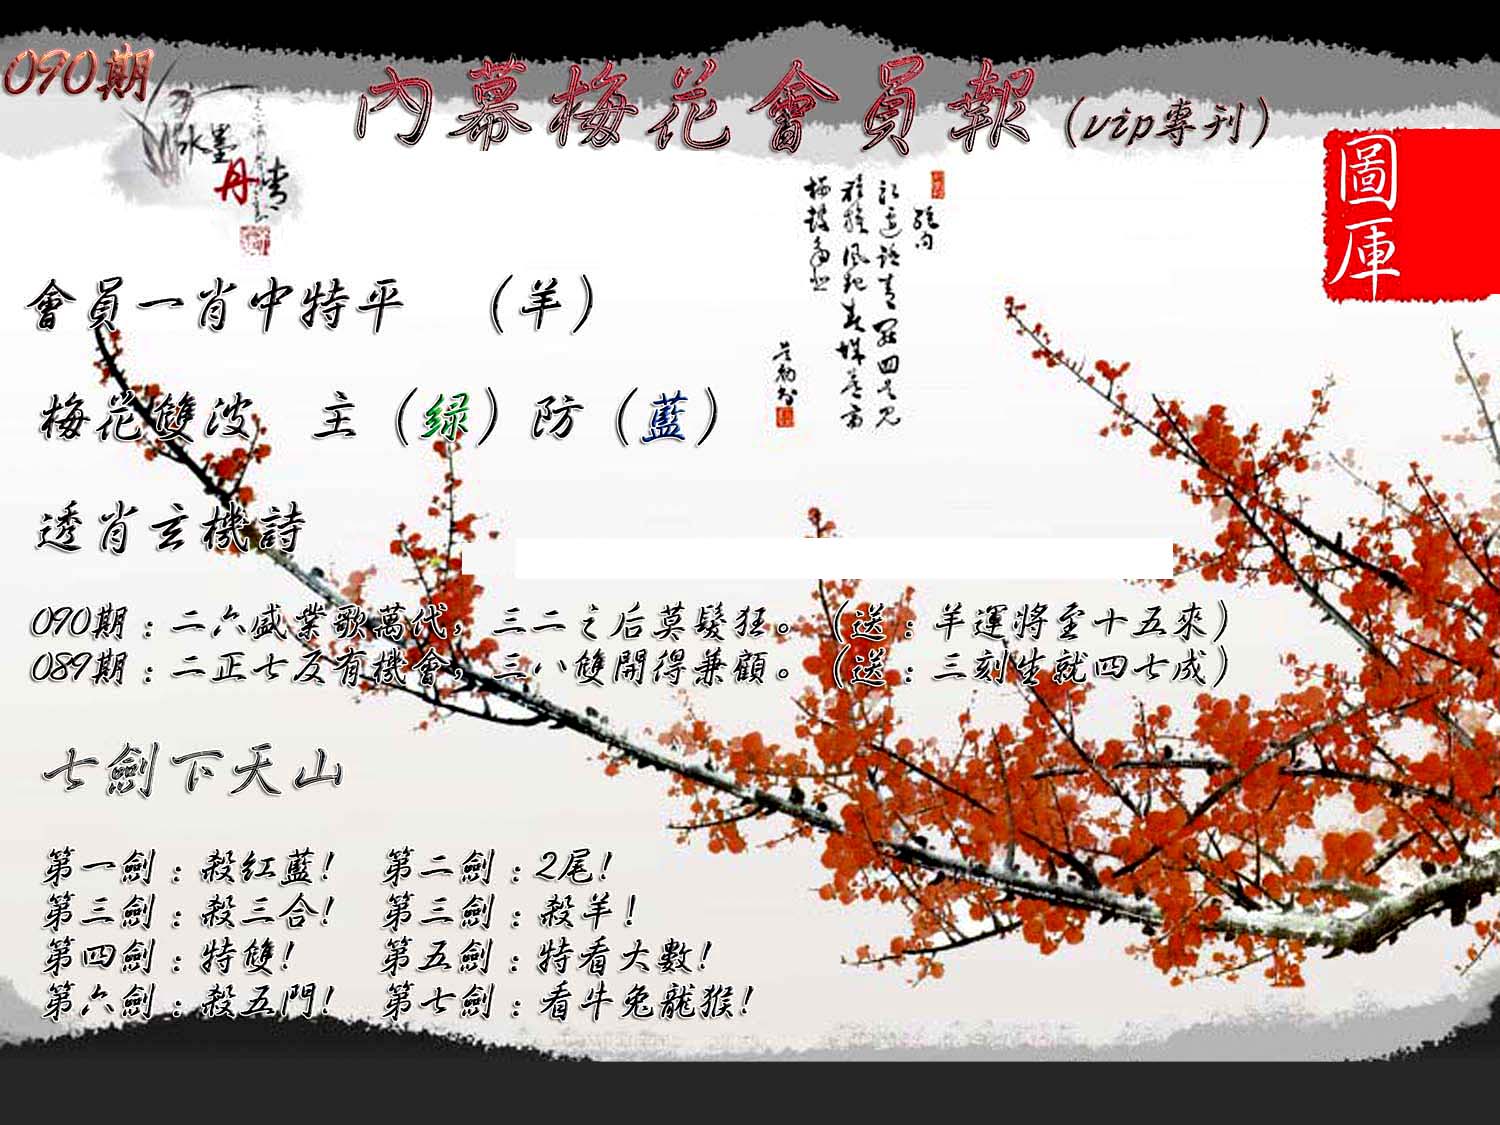 090期
內幕梅花會員報（vip專刊）
水墨
丹青
圖庫
會員一肖中特平　（羊）
梅花雙波　主（绿）防（藍）
透肖玄機詩
090期：二六盛業歌萬代，三二之后莫髮狂。（送：羊運將至十五來）
089期：二正七反有機會，三八雙開得兼顧。（送：三刻生就四七成）
七劍下天山
第一劍：殺红藍！　第二劍：2尾！
第三劍：殺三合！　第三劍：殺羊！
第四劍：特雙！　第五劍：特看大數！
第六劍：殺五門！　第七劍：看牛兔龍猴！